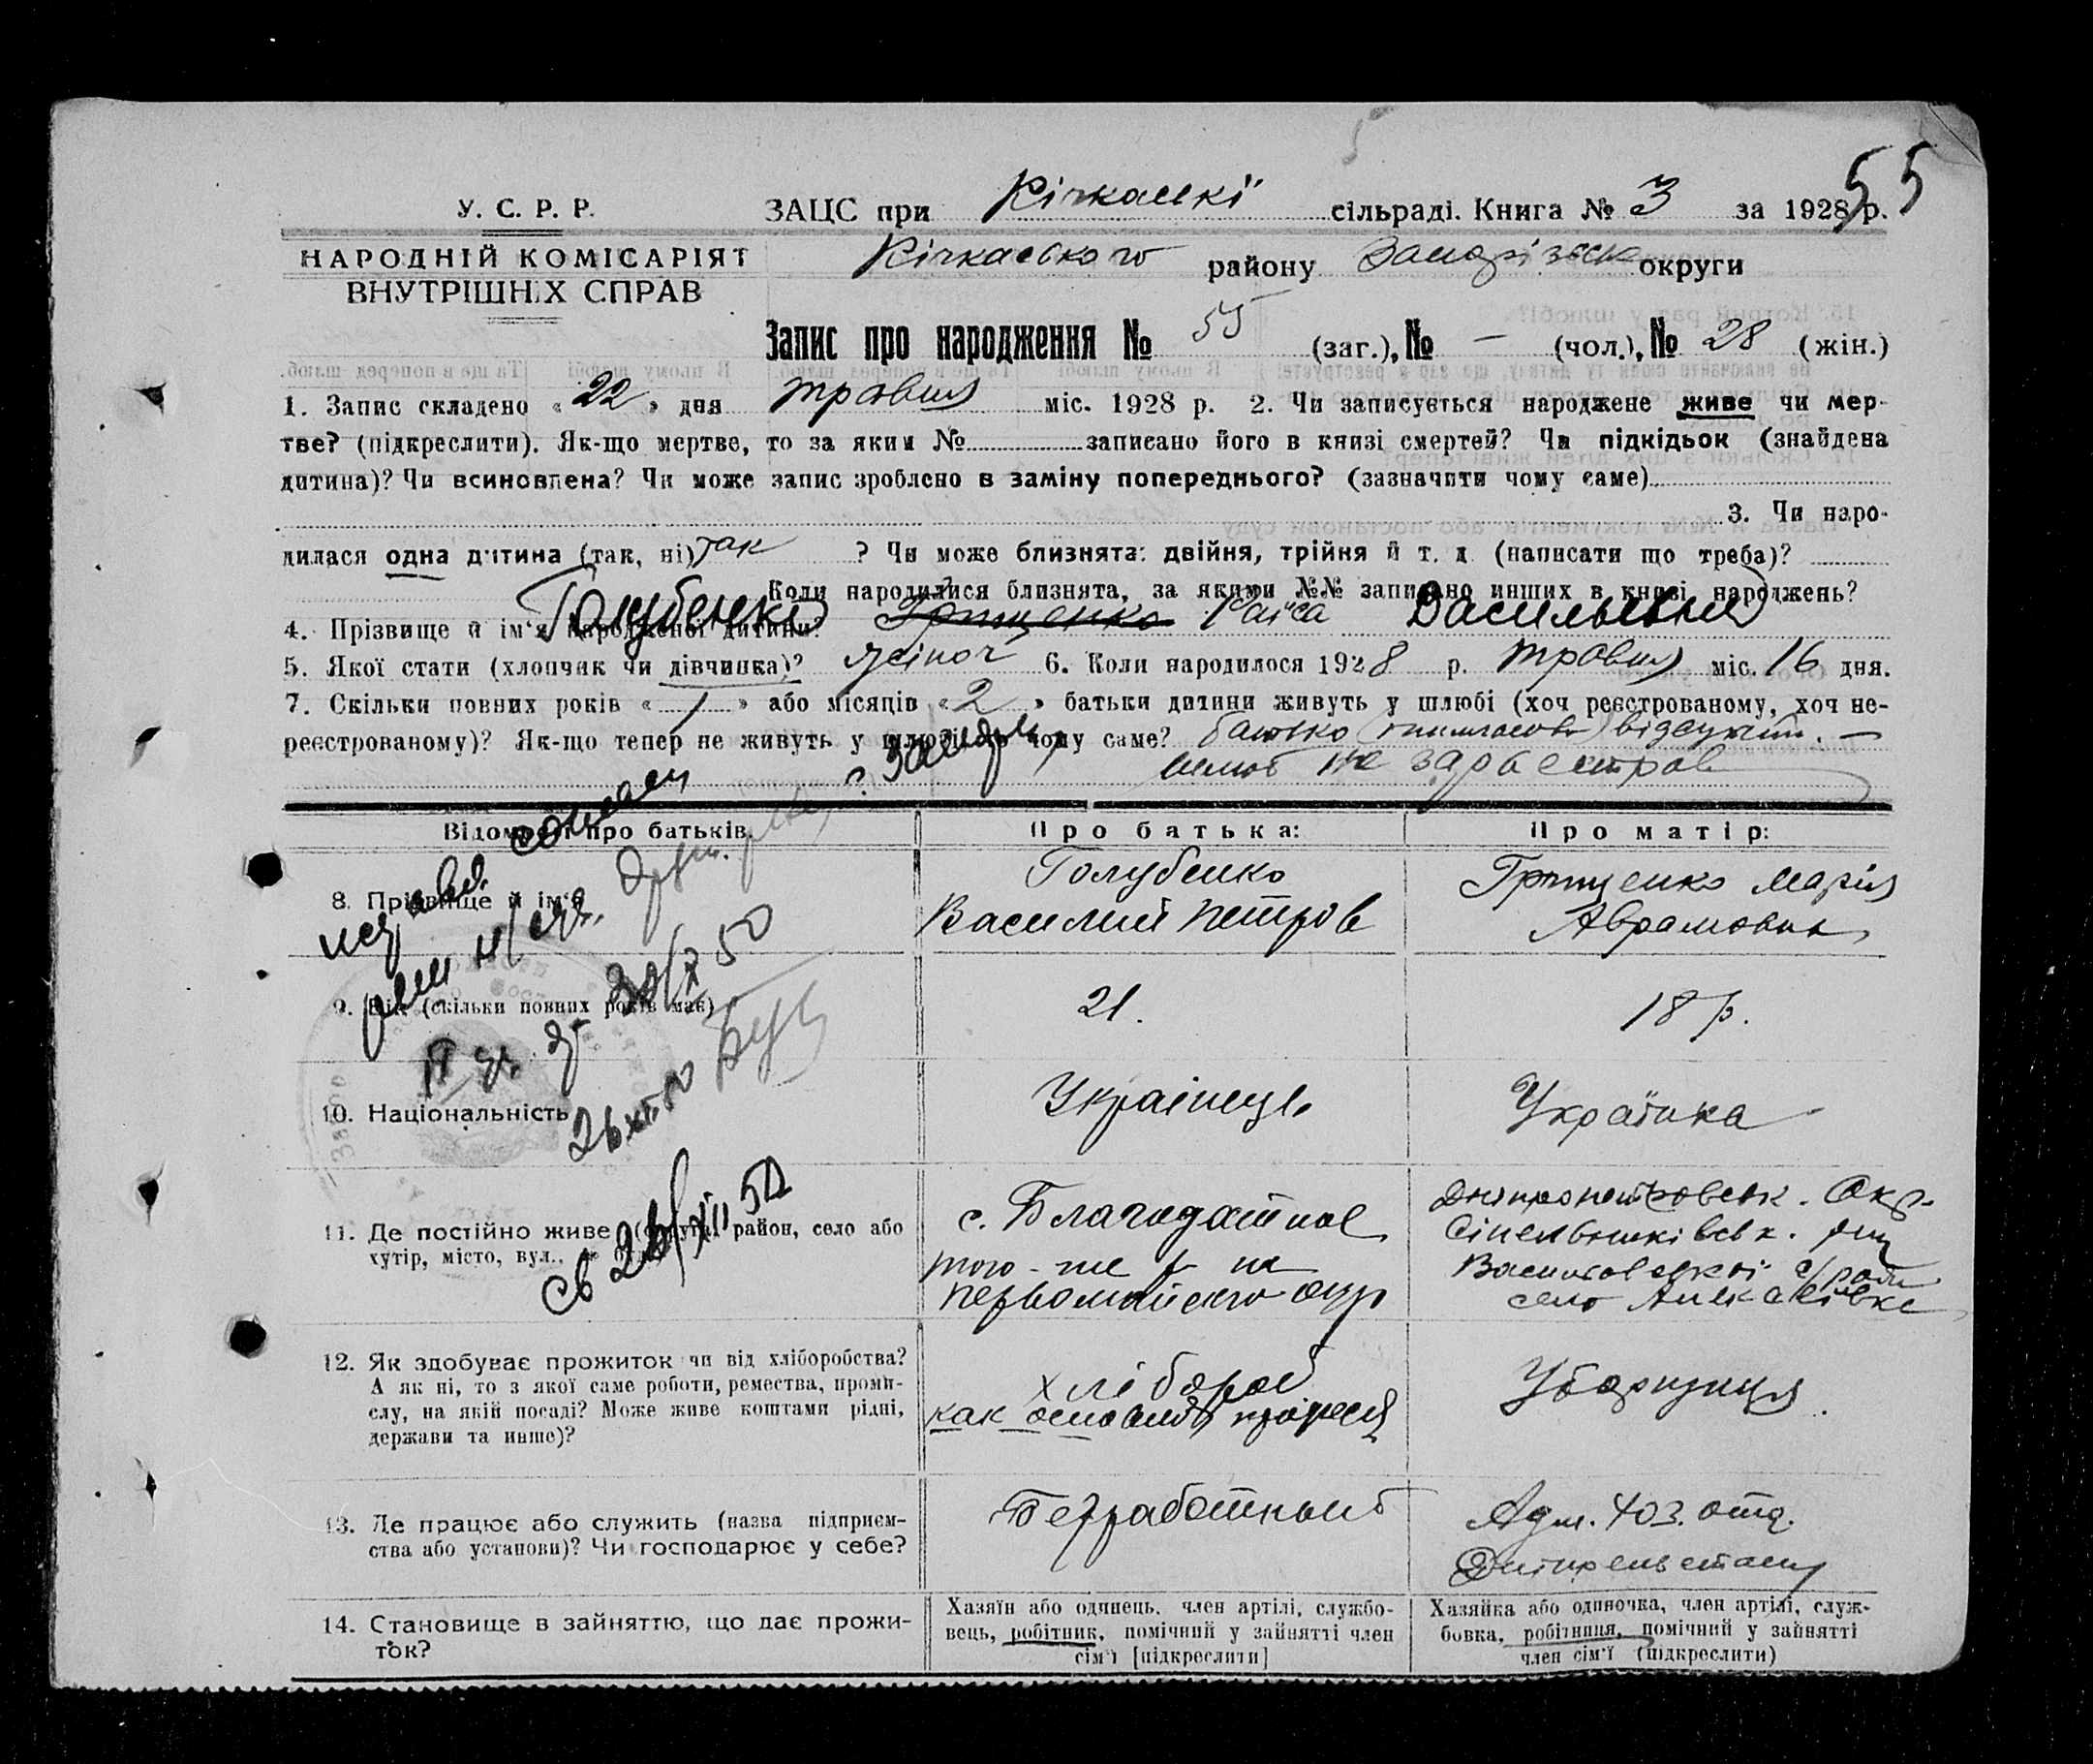 55
У. С. Р. Р.
ЗАЦС при Кічкаській сільраді. Книга № 3 за 1928 р.
НАРОДНІЙ КОМІСАРІЯТ
ВНУТРІШНІХ СПРАВ
Кічкаського району Запорізьк округи
Запис про народження № 55 (заг.), № — (чол.), № 28 (жін.)
1. Запис складено « 22 » дня травня міс. 1928 р. 2. Чи записується народжене живе чи мер-
тве? (підкреслити). Як-що мертве, то за яким № записано його в книзі смертей? Чи підкідьок (знайдена
дитина)? Чи всиновлена? Чи може запис зроблено в заміну попереднього? (зазначити чому саме)
3. Чи наро-
дилася одна дитина (так, ні) так ? Чи може близнята: двійня, трійня й т. д. (написати що треба)?
Коли народилися близнята, за якими №№ записано инших в книзі народжень?
4. Прізвище й ім'я народженої дитини? Голубенко Грищенко Раїса Васильевна
5. Якої стати (хлопчик чи дівчинка)? жіноч 6. Коли народилося 1928 р. травня міс. 16 дня.
7. Скільки повних років « / » або місяців « 2 » батьки дитини живуть у шлюбі (хоч реєстрованому, хоч не-
реєстрованому)? Як-що тепер не живуть у шлюбі, то чому саме? батько тимчасово відсутній. —
шлюб не зареєстров
Відомості про батьків.
Про батька:
Про матір:
8. Прізвище й ім'я
Голубенко
Василий Петров
Грищенко Марія
Аврамовна
9. Вік (скільки повних років має)
21.
18 р.
10. Національність
Українець
Українка
11. Де постійно живе (округа, район, село або
хутір, місто, вул.,
с. Благодатное
того-же р-на
Первомайского окр
Дніпропетровськ. Окр.
Сінельниківськ. рну
село
12. Як здобуває прожиток чи від хліборобства?
А як ні, то з якої саме роботи, ремества, проми-
слу, на якій посаді? Може живе коштами рідні,
держави та инше)?
хлібороб
как основная професія
Уборщиця
13. Де працює або служить (назва підприєм-
ства або установи)? Чи господарює у себе?
Безработный
Адм. хоз. отд.
Дніпрельстану
14. Становище в зайняттю, що дає прожи-
ток?
Хазяїн або одинець, член артілі, службо-
вець, робітник, помічний у зайнятті член
сім'ї [підкреслити]
Хазяйка або одиночка, член артілі, служ-
бовка, робітниця, помічний у зайнятті
член сім'ї (підкреслити)